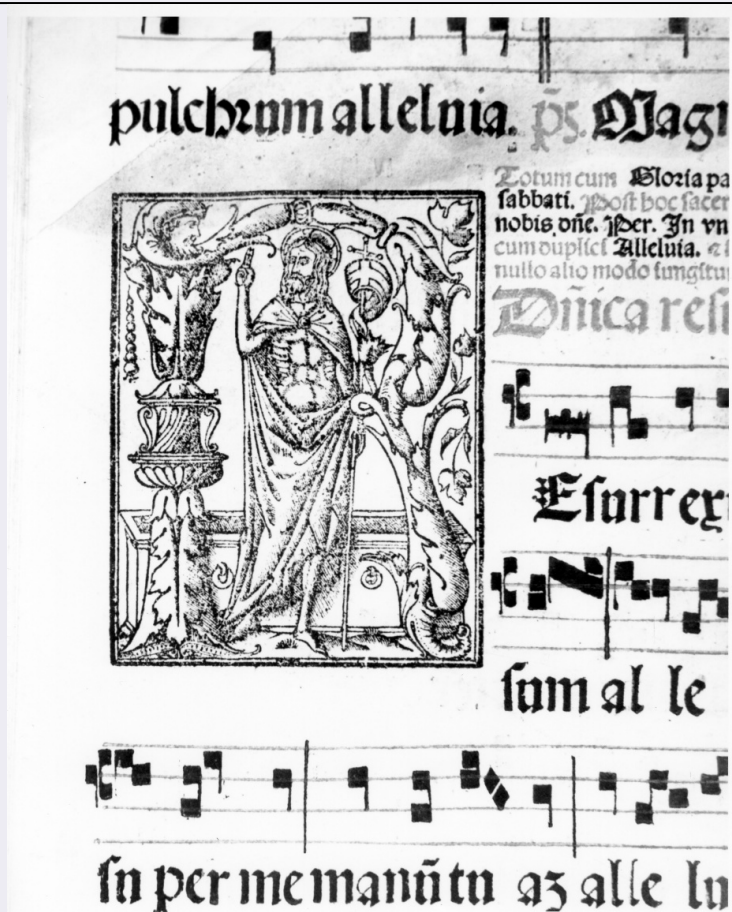 pulchrum alleluia. p̄s. Mag
Totum cum Gloria pa
sabbati. Post hoc sacer
nobis dñe. Per. In vn
cum duplici Alleluia.
nullo alio modo iungitu
Dñica res
Esurrex
sum al le
su per me manū tu aʒ alle lu